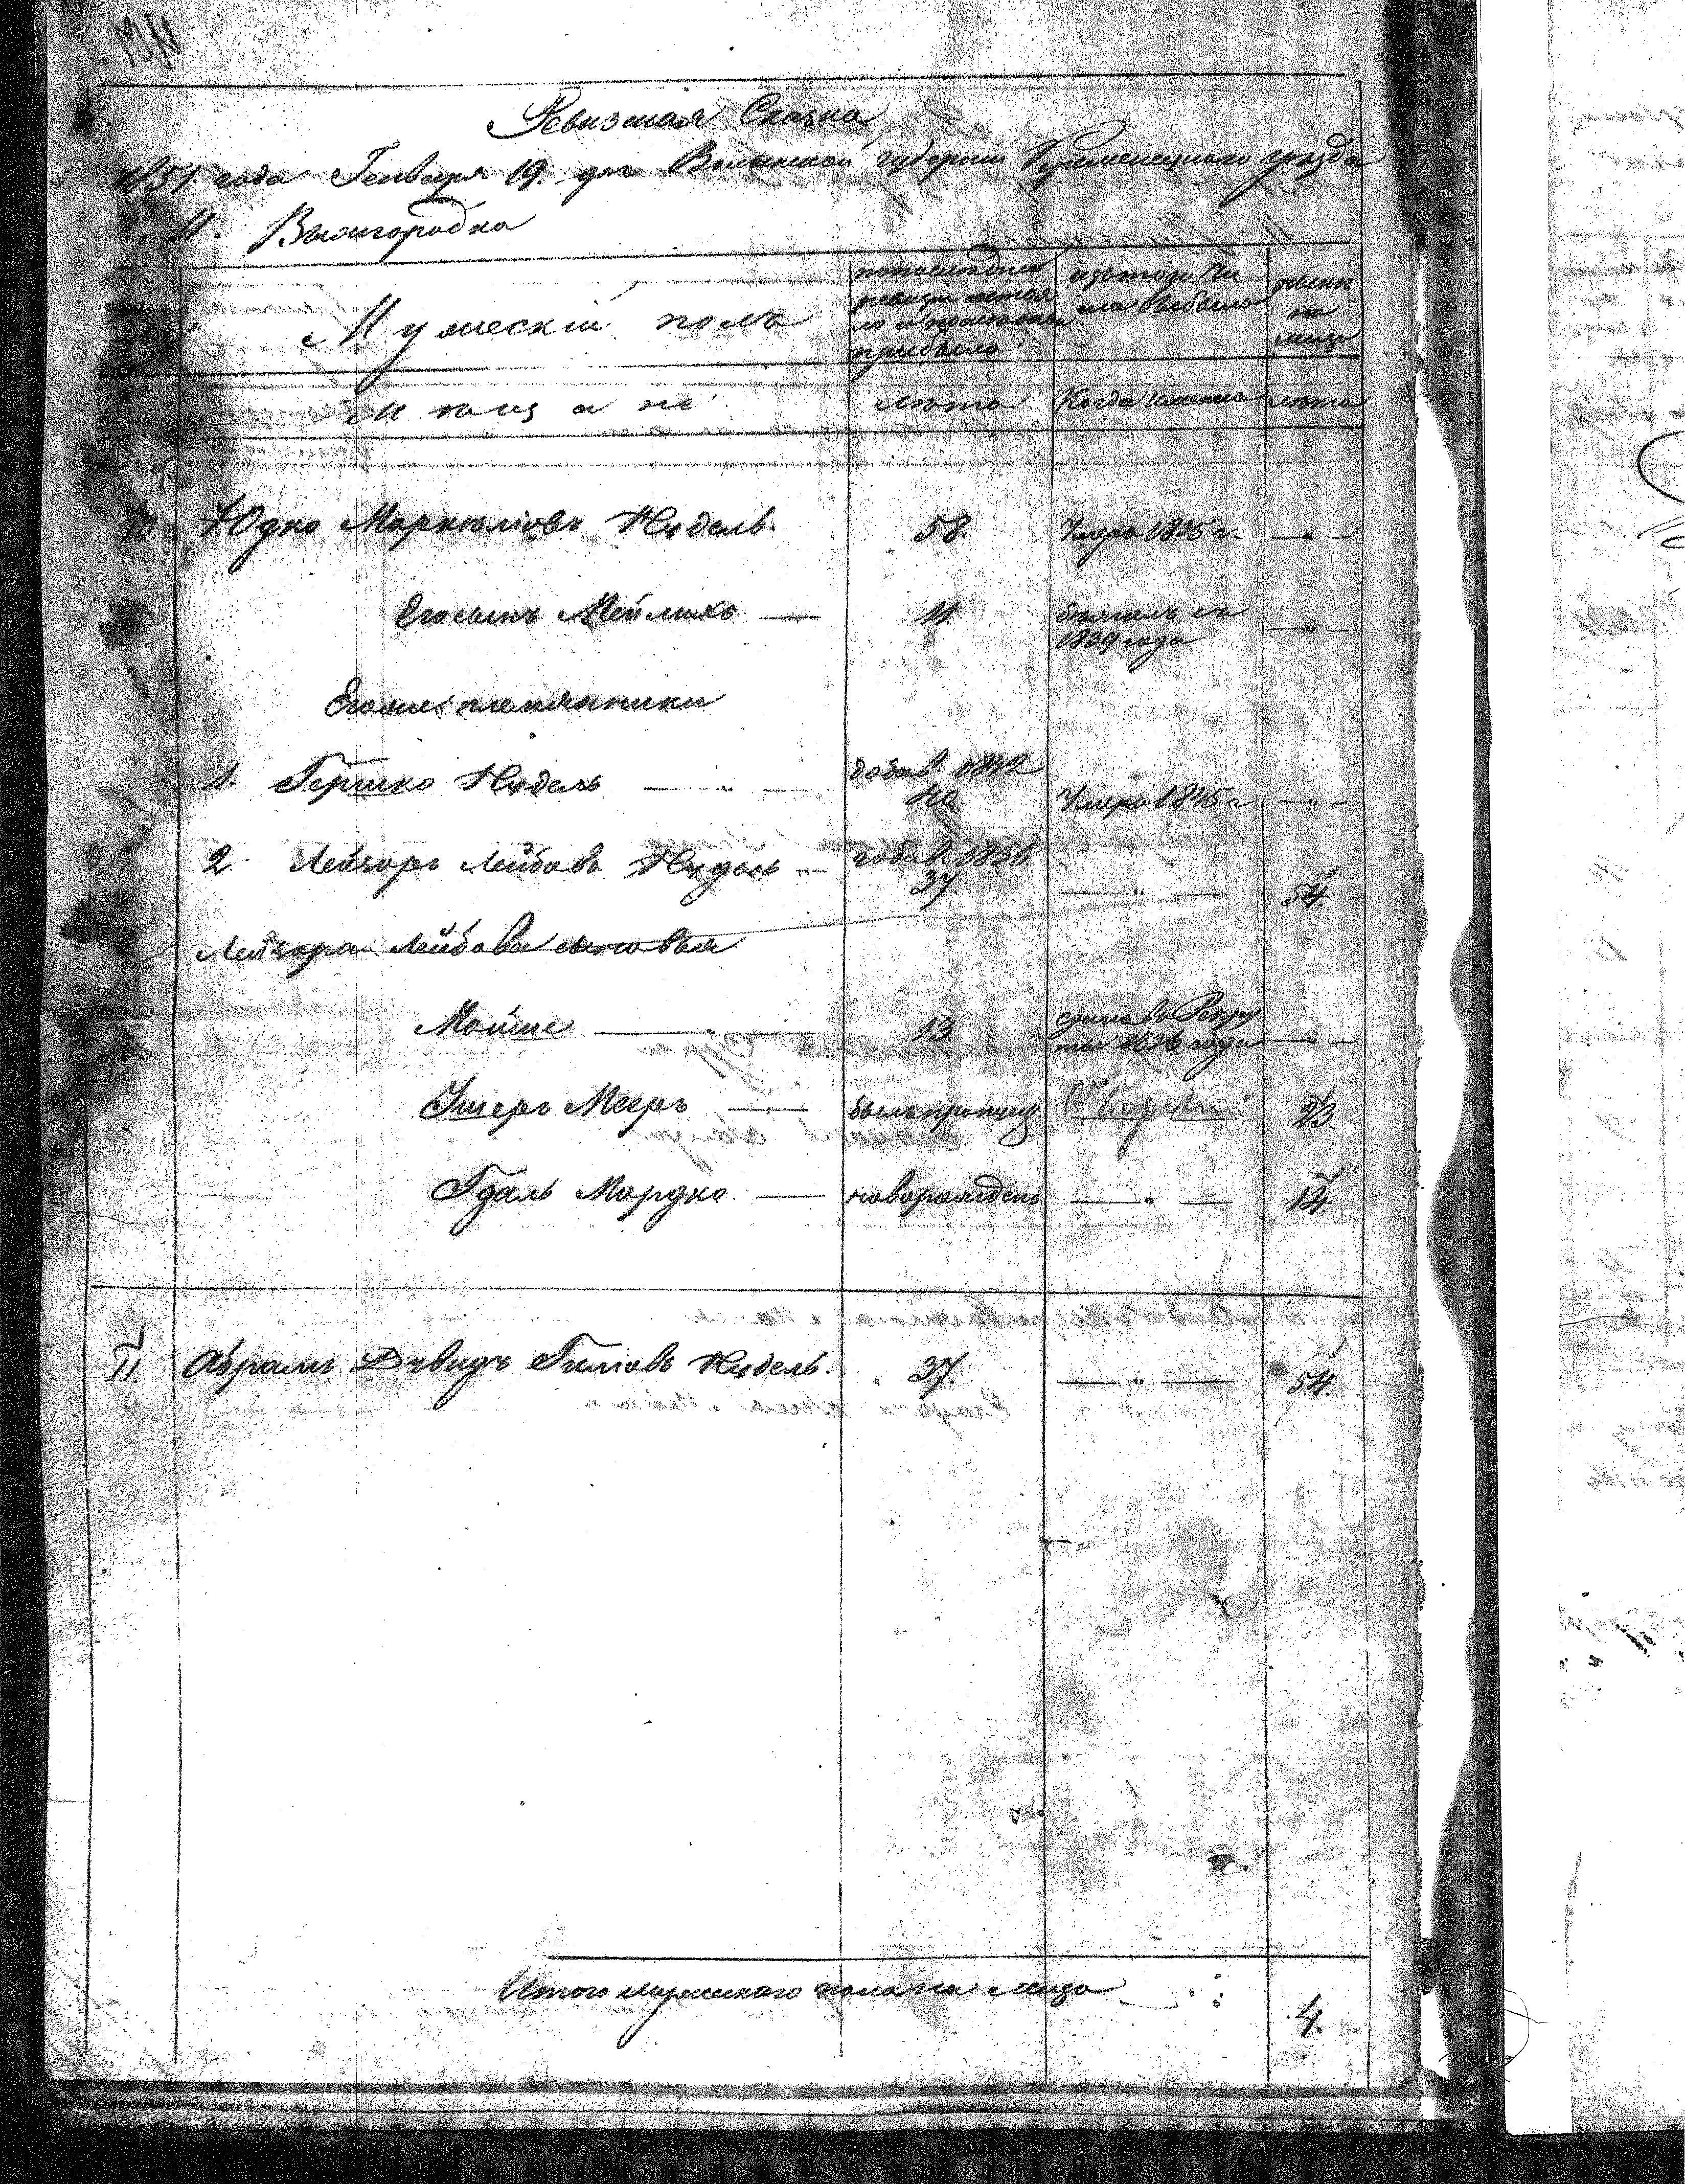 Ревизская Сказка
1851 года Генваря 19. дня Волынской губернии Кременецкаго уезда
М. Вышгородка
Мужескій полъ
по последней ревизіи состояло и после того прибыло
изъ того числа выбыло
ныне на лицо
Мещане
лета
Когда именно
лета
10 Юдко Маркелiовъ Нудель. 58 Умеръ 1835 г. — " —
Его сынъ Мейлихъ — 11 бежалъ съ 1839 года — " —
Его же племянники
1. Гершко Нудель — " — добав. 1842 40 Умеръ 1845 г — " —
2. Лейзоръ Лейбовъ Нудель — добав. 1836 37 — " — 54.
Лейзора Лейбова сыновья
Мойше — " — 13 сданъ въ Рекруты 1836 года — " —
Ушеръ Мееръ — былъ пропущ 23.
Гдаль Мордко — новорожденъ — " — 14.
11 Абрамъ Давидъ Нудель. 37. — " — 54.
Итого мужескаго пола на лицо 4.